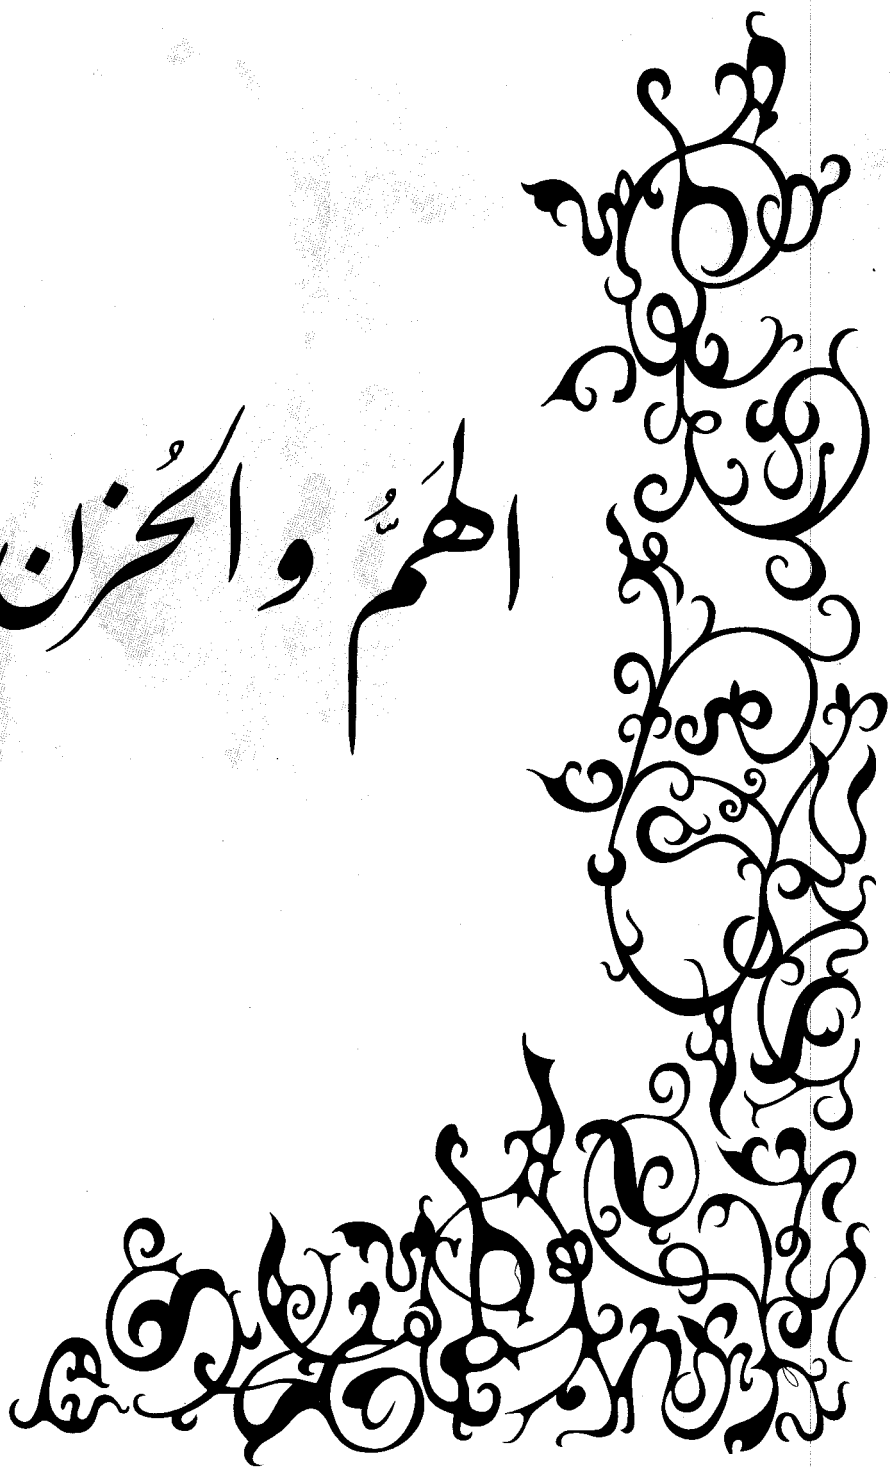 الهَمُّ والحُزن